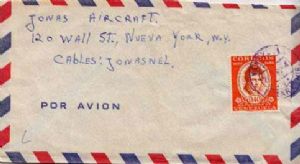 JONAS AIRCRAFT.
120 WALL ST., NUEVA YORK, N.Y.
CABLES: JONASNEL.
CORREOS
POR AVION